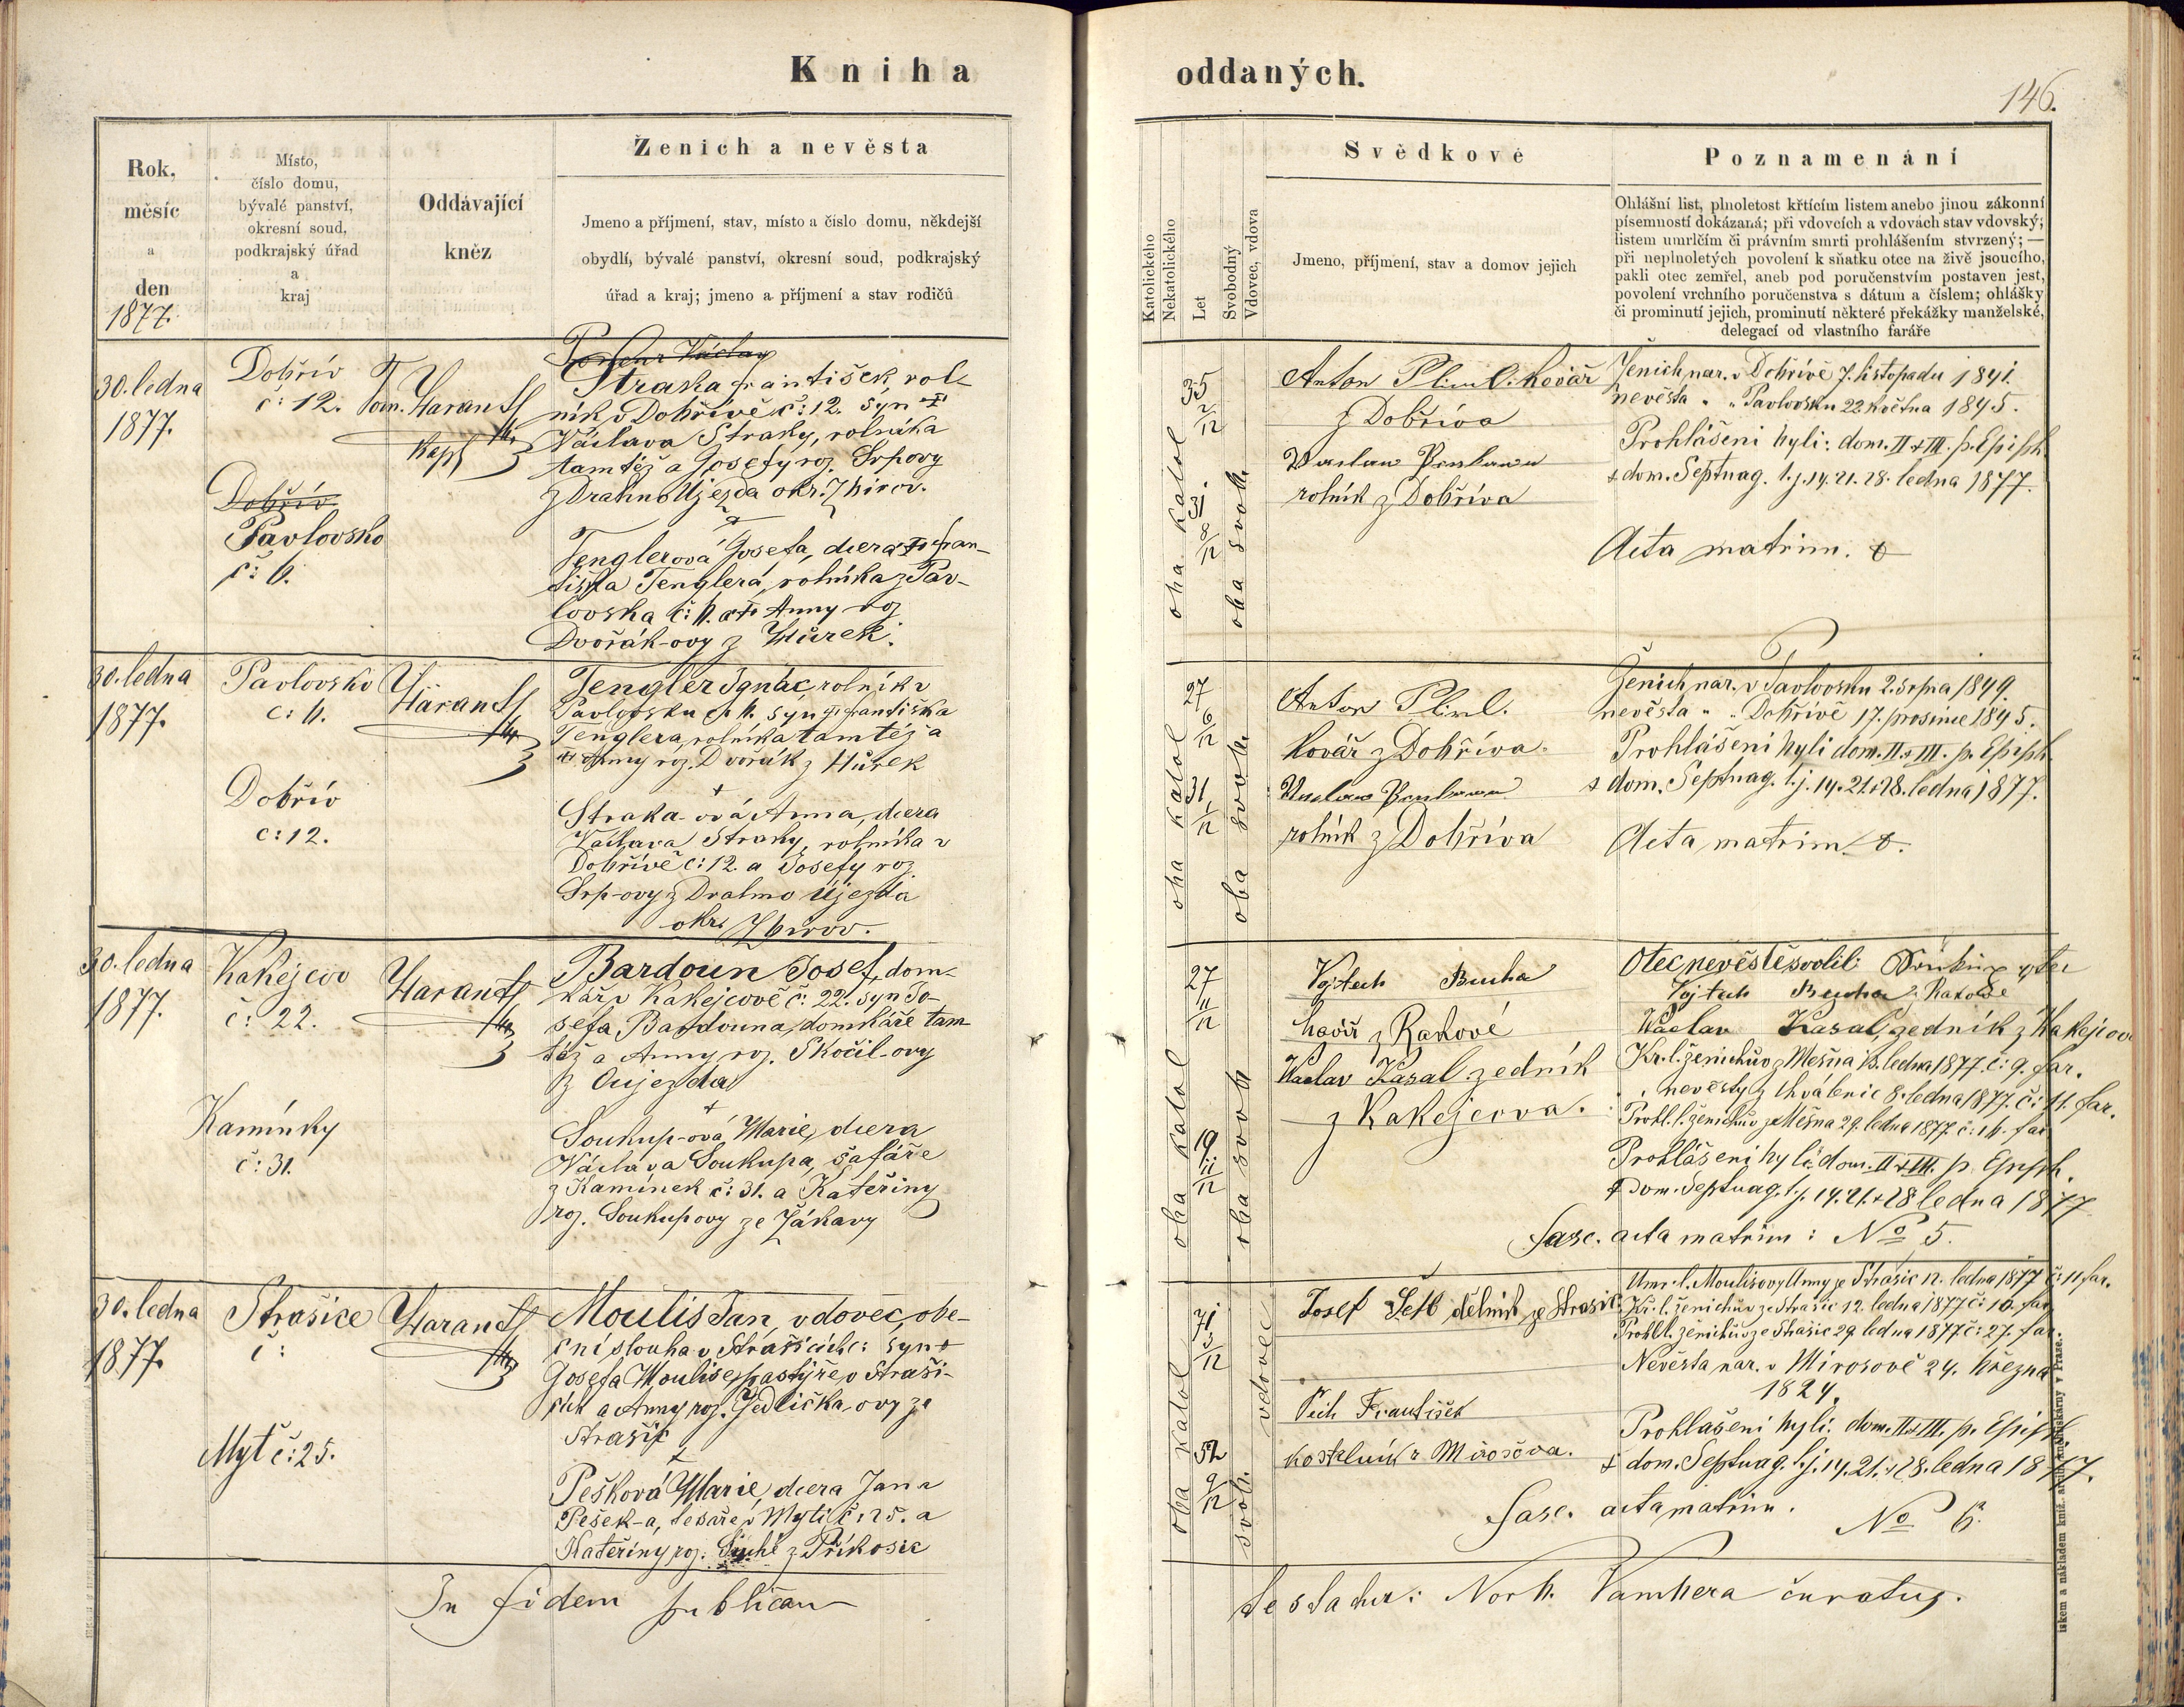 Kniha
Ženich a nevěsta
Rok,
měsíc
a
den
1877.
Místo,
číslo domu,
bývalé panství,
okresní soud,
podkrajský úřad
a
kraj
Oddávající
kněz
Jmeno a příjmení, stav, místo a číslo domu, někdejší
obydlí, bývalé panství, okresní soud, podkrajský
úřad a kraj; jmeno a příjmení a stav rodičů
30. ledna
1877.
Dobřív
č: 12.
Pavlovsko
č: 6.
Václav
Straka František, rol-
ník v Dobřívě č: 12. syn †
Václava Straky, rolníka
tamtéž a Josefy roz. Srpovy
z Drahno Újezda okr. Zbirov.
a
Tenglerová Josefa, dcera † Fran-
tiška Tenglera, rolníka z Pav-
lovska č: 6. a † Anny roz
Dvořák-ovy z Hůrek.
30. ledna
1877.
Pavlovsko
č: 6.
Dobřív
č: 12.
Tengler Ignác, rolník v
Pavlovsku č. 6. syn † Františka
Tenglera, rolníka tamtéž a
† Anny roz. Dvořák z Hůrek
+
Straka-ová Anna, dcera
Václava Straky, rolníka v
Dobřívě č: 12. a Josefy roz.
Srp-ovy z Drahno Újezda
okr. Zbirov.
30. ledna
1877.
Kakejcov
č: 22.
Kamínky
č: 31.
Bardoun Josef, dom-
kář v Kakejcově č: 22. syn Jo-
sefa Bardouna, domkáře tam
též a Anny roz. Skočil-ovy
z Oujezda
+
Soukup-ová Marie, dcera
Václava Soukupa, šafáře
z Kamínek č: 31. a Kateřiny
roz. Soukupovy ze Žákavy
30. ledna
1877.
Strašice
č:
Myť č: 25.
Moulis Jan, vdovec, obe-
cní slouha v Strašicích č: syn †
Josefa Moulise, pastýře v Straši-
cích a Anny roz. Jedlička-ovy ze
Strašic
+
Pešková Marie, dcera Jana
Pešek-a, tesaře v Myti č: 25. a
Kateřiny roz. Suché z Příkosic
In fidem publicam
oddaných.
146.
Svědkové
Poznamenání
Katolického
Nekatolického
Let
Svobodný
Vdovec, vdova
Jmeno, příjmení, stav a domov jejich
Ohlášní list, plnoletost křtícím listem anebo jinou zákonní
písemností dokázaná; při vdovcích a vdovách stav vdovský;
listem umrlčím či právním smrti prohlášením stvrzený; —
při neplnoletých povolení k sňatku otce na živě jsoucího,
pakli otec zemřel, aneb pod poručenstvím postaven jest,
povolení vrchního poručenstva s dátum a číslem; ohlášky
či prominutí jejich, prominutí některé překážky manželské,
delegací od vlastního faráře
oba katol
35
2/12
31
8/12
oba svob.
Anton kovář
z Dobříva
rolník z Dobříva
Ženich nar. v Dobřívě 7. listopadu 1841.
nevěsta " " Pavlovsku 22. května 1845.
Prohlášeni byli: dom. II. & III. p. Epiph.
& dom. Septuag. t.j. 14. 21. 28. ledna 1877.
Acta matrim.
oba katol
27
6/12
31
1/12
oba svob.
Anton
kovář z Dobříva.
rolník z Dobříva
Ženich nar. v Pavlovsku 2. srpna 1849.
nevěsta " " Dobřívě 17. prosince 1845.
Prohlášeni byli dom. II. & III. p. Epiph
& dom. Septuag. t.j. 14. 21. & 28. ledna 1877.
Acta matrim.
oba katol
27
11/12
19
11/12
oba svob
Vojtech Bucha
havíř z Rakové
Waclav Kasal zedník
z Kakejcova.
Otec nevěstě svolil:
Vojtech Bucha
Waclav Kasal, zedník z Kakejcova
Kr. l. ženichův z Mešna ledna 1877. č: 9. far.
" nevěsty z Chválenic 8. ledna 1877. č: 11. far.
Prohl. l. ženichův ze Mešna 29. ledna 1877. č: 16. far
Prohlášeni byli: dom. II & III. p. Epiph.
& Dom. Septuag. t.j. 14. 21. & 28 ledna 1877
Fasc. acta matrim: No 5.
oba katol
71
3/12
52
9/12
vdovec
svob.
Josef dělník ze Strašic.
Pech František
kostelník z Mirošova.
Umr. l. Moulisovy Anny ze Strašic 12. ledna 1877 č: 11 far.
Kř. l. ženichův ze Strašic 12. ledna 1877 č: 10. far
Prohl. l. ženichův ze Strašic 29. ledna 1877. č: 27. far.
Nevěsta nar. v Mirošově 24. března
1824.
Prohlášeni byli: dom. II. & III. p. Epiph
& dom. Septuag. t.j. 14. 21. & 28. ledna 1877.
Fasc. acta matrim. No 6.
testatur: Norb. Vambera curatus.